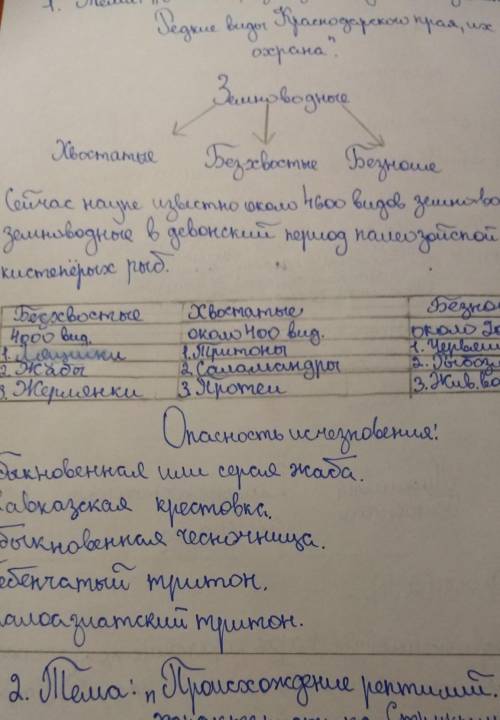 1. Тема: "
Редкие виды Краснодарского края, их
охрана".
Земноводные
Хвостатые Безхвостые Безногие
Сейчас науке известно около 4600 видов земново
земноводные в девонский период палеозойской
кистепёрых рыб.
Безхвостые Хвостатые Безно
4000 вид. около 400 вид. около 20
1. Лягушки 1. Тритоны 1. Червяги
2. Жабы 2. Саламандры 2. Рыбоз
3. Жерлянки 3. Протеи 3. Жив. во
Опасность исчезновения!
быкновенная или серая жаба.
кавказская крестовка.
быкновенная чесночница.
ебенчатый тритон.
алоазиатский тритон.
2. Тема: "Происхождение рептилий.